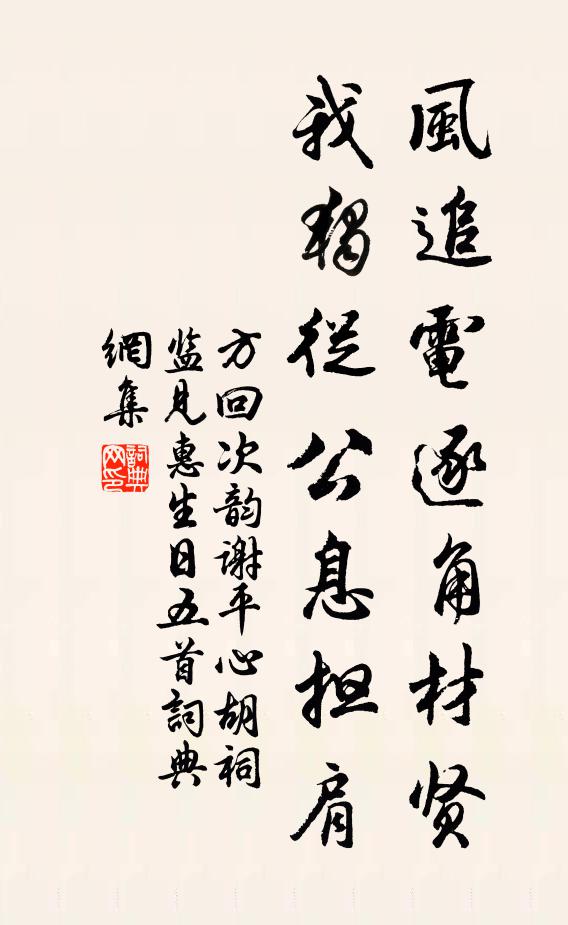 風追電逐角材贤
我獨從公息担肩
方回次韵谢平心胡祠
监見惠生日五首詞典
網集
詞典网印